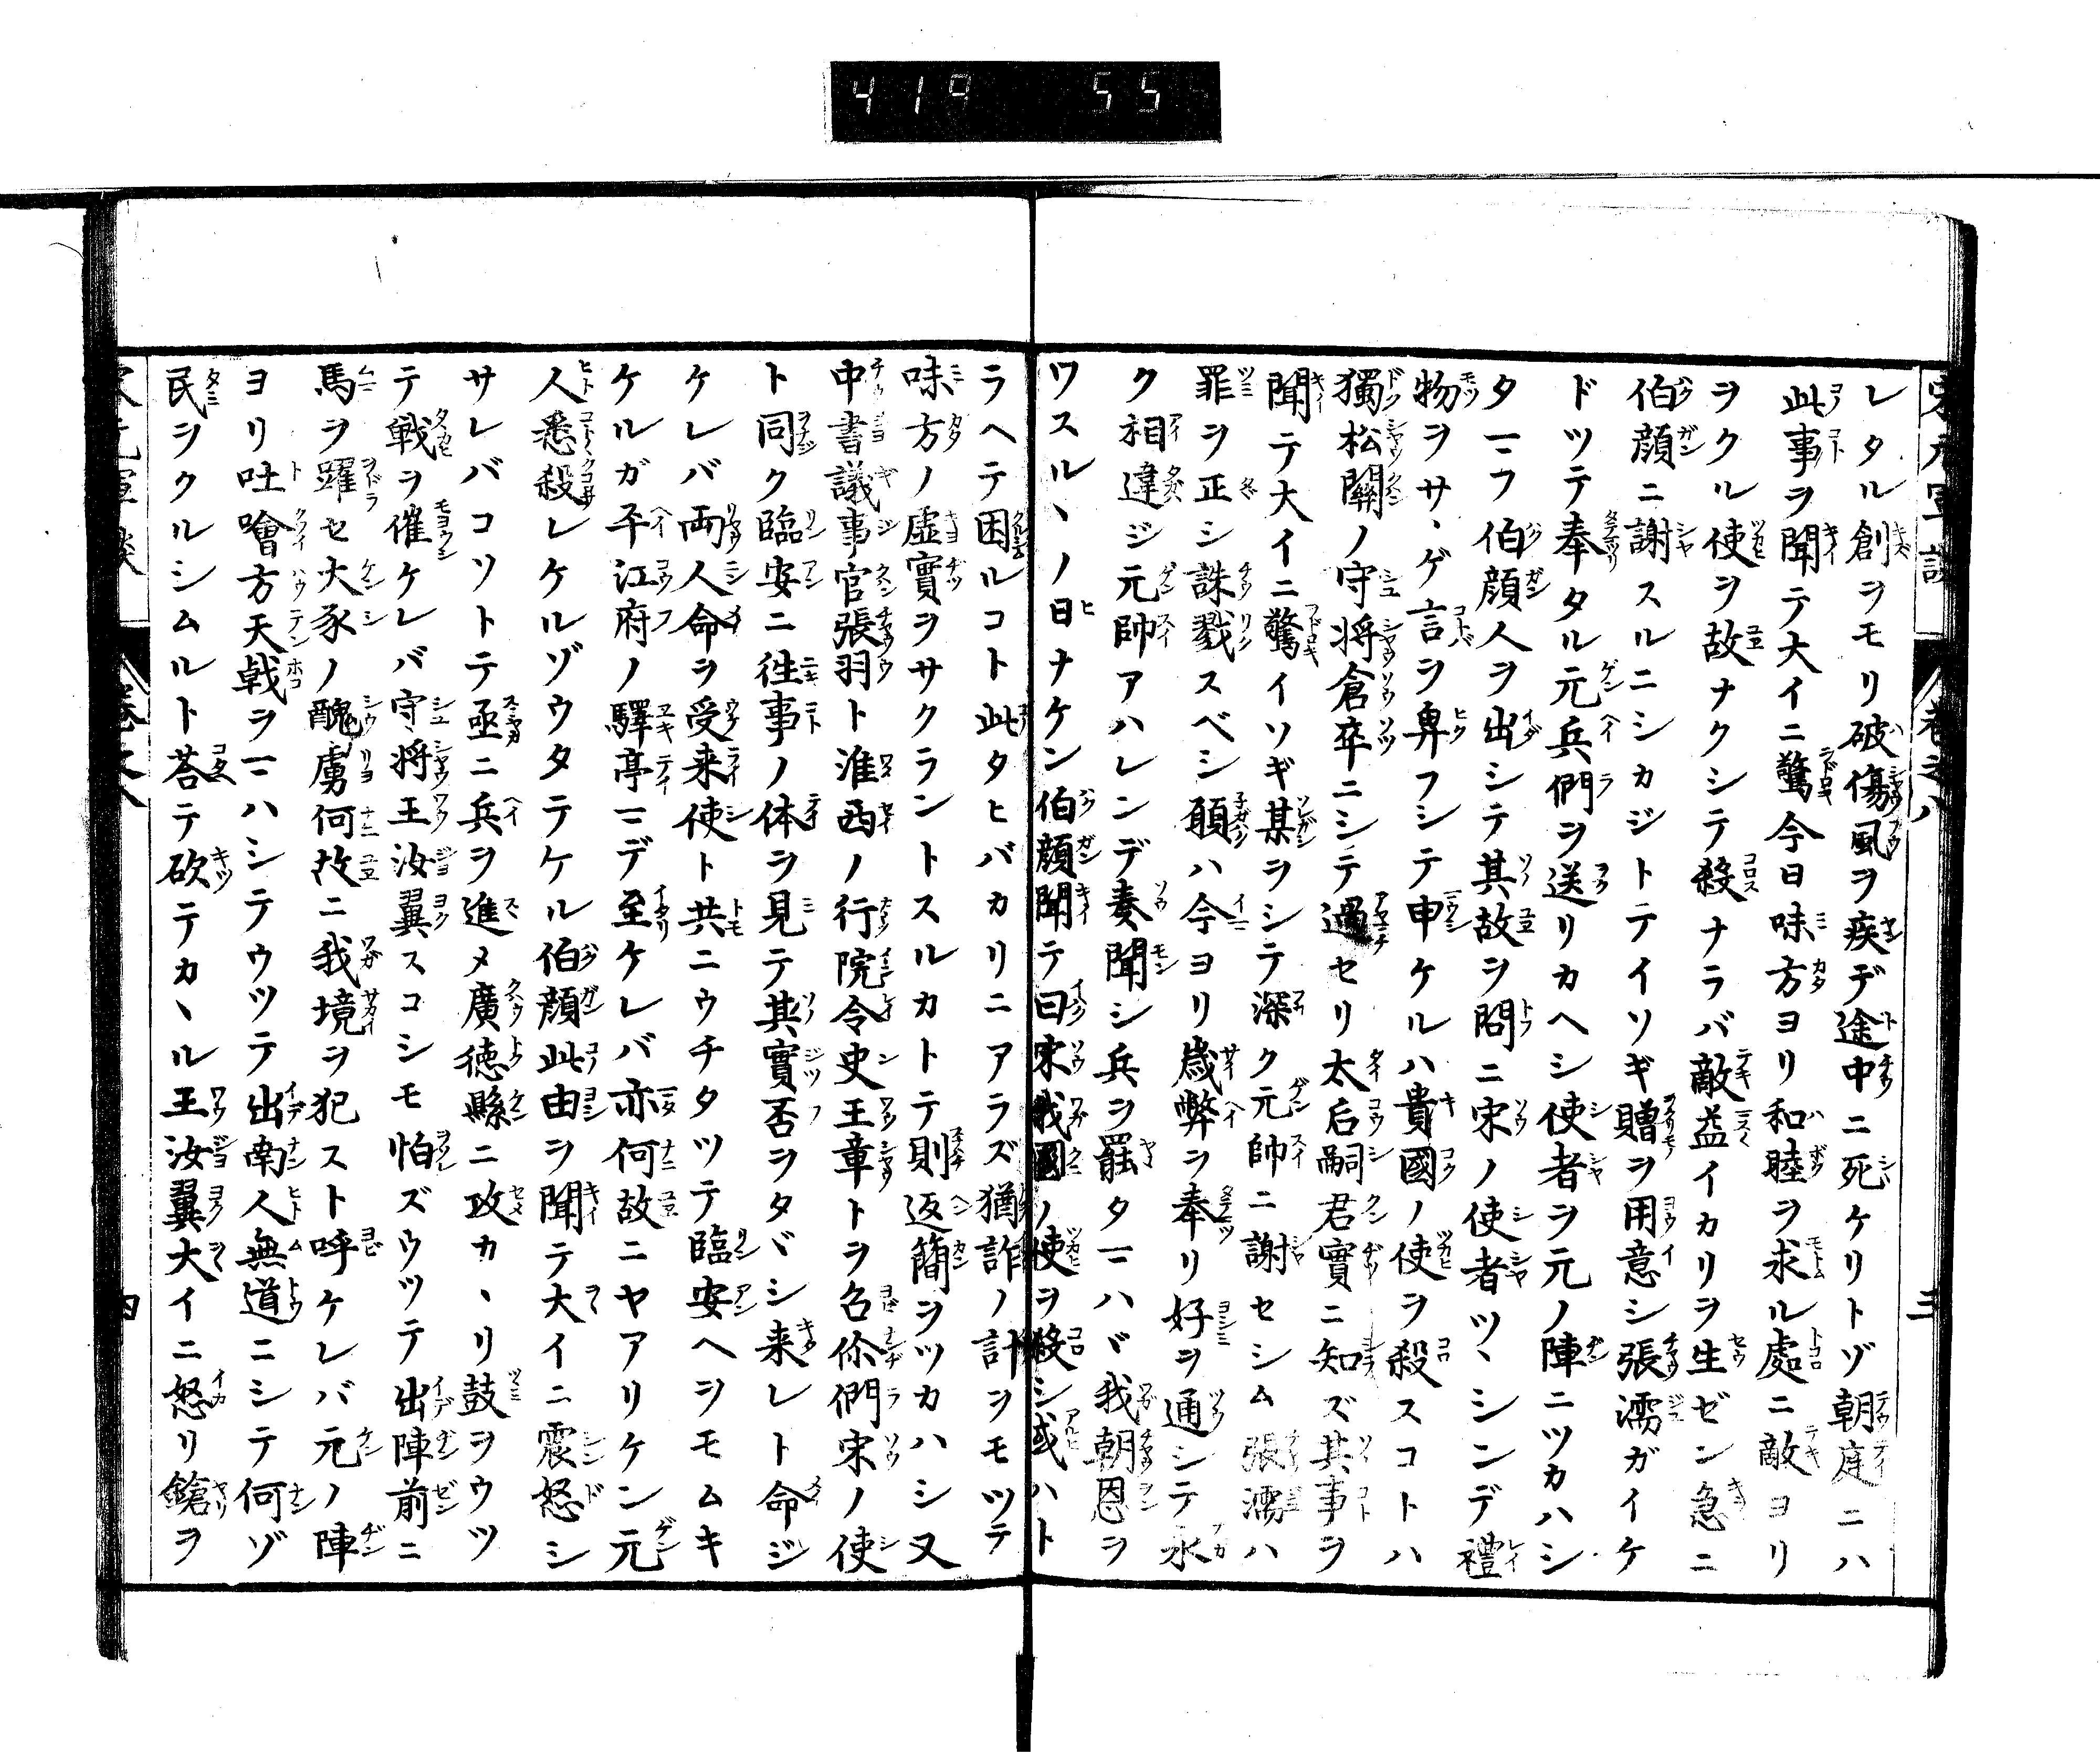 419 55
宋元軍談 巻之八 三
レタル創ヲモリ破傷風ヲ疾デ途中ニ死ケリトゾ朝庭ニハ
此事ヲ聞テ大イニ驚今日味方ヨリ和睦ヲ求ル處ニ敵ヨリ
ヲクル使ヲ故ナクシテ殺ナラバ敵益イカリヲ生ゼン急ニ
伯顔ニ謝スルニシカジトテイソギ贈ヲ用意シ張濡ガイケ
ドツテ奉タル元兵們ヲ送リカヘシ使者ヲ元ノ陣ニツカハシ
タマフ伯顔人ヲ出シテ其故ヲ問ニ宋ノ使者ツヽシンデ禮
物ヲサヽゲ言ヲ卑フシテ申ケルハ貴國ノ使ヲ殺スコトハ
獨松關ノ守将倉卒ニシテ過セリ太后嗣君實ニ知ズ其事ヲ
聞テ大イニ驚イソギ某ヲシテ深ク元帥ニ謝セシム張濡ハ
罪ヲ正シ誅戮スベシ願ハ今ヨリ歳弊ヲ奉リ好ヲ通シテ永
ク相違ジ元帥アハレンデ奏聞シ兵ヲ罷タマハヾ我朝恩ヲ
ワスルヽノ日ナケン伯顔聞テ曰宋我國ノ使ヲ殺シ或ハト
ラヘテ困ルコト此タヒバカリニアラズ猶詐ノ計ヲモツテ
味方ノ虚實ヲサクラントスルカトテ則返簡ヲツカハシ又
中書議事官張羽ト淮西ノ行院令史王章トヲ召伱們宋ノ使
ト同ク臨安ニ徃事ノ体ヲ見テ其實否ヲタヾシ来レト命ジ
ケレバ両人命ヲ受来使ト共ニウチタツテ臨安ヘヲモムキ
ケルガ平江府ノ驛亭マデ至ケレバ亦何故ニヤアリケン元
人悉殺レケルゾウタテケル伯顔此由ヲ聞テ大イニ震怒シ
サレバコソトテ亟ニ兵ヲ進メ廣徳縣ニ攻カヽリ鼓ヲウツ
テ戦ヲ催ケレバ守将王汝翼スコシモ怕ズウツテ出陣前ニ
馬ヲ躍セ犬豕ノ醜虜何故ニ我境ヲ犯スト呼ケレバ元ノ陣
ヨリ吐噲方天戟ヲマハシテウツテ出南人無道ニシテ何ゾ
民ヲクルシムルト荅テ砍テカヽル王汝翼大イニ怒リ鎗ヲ
四